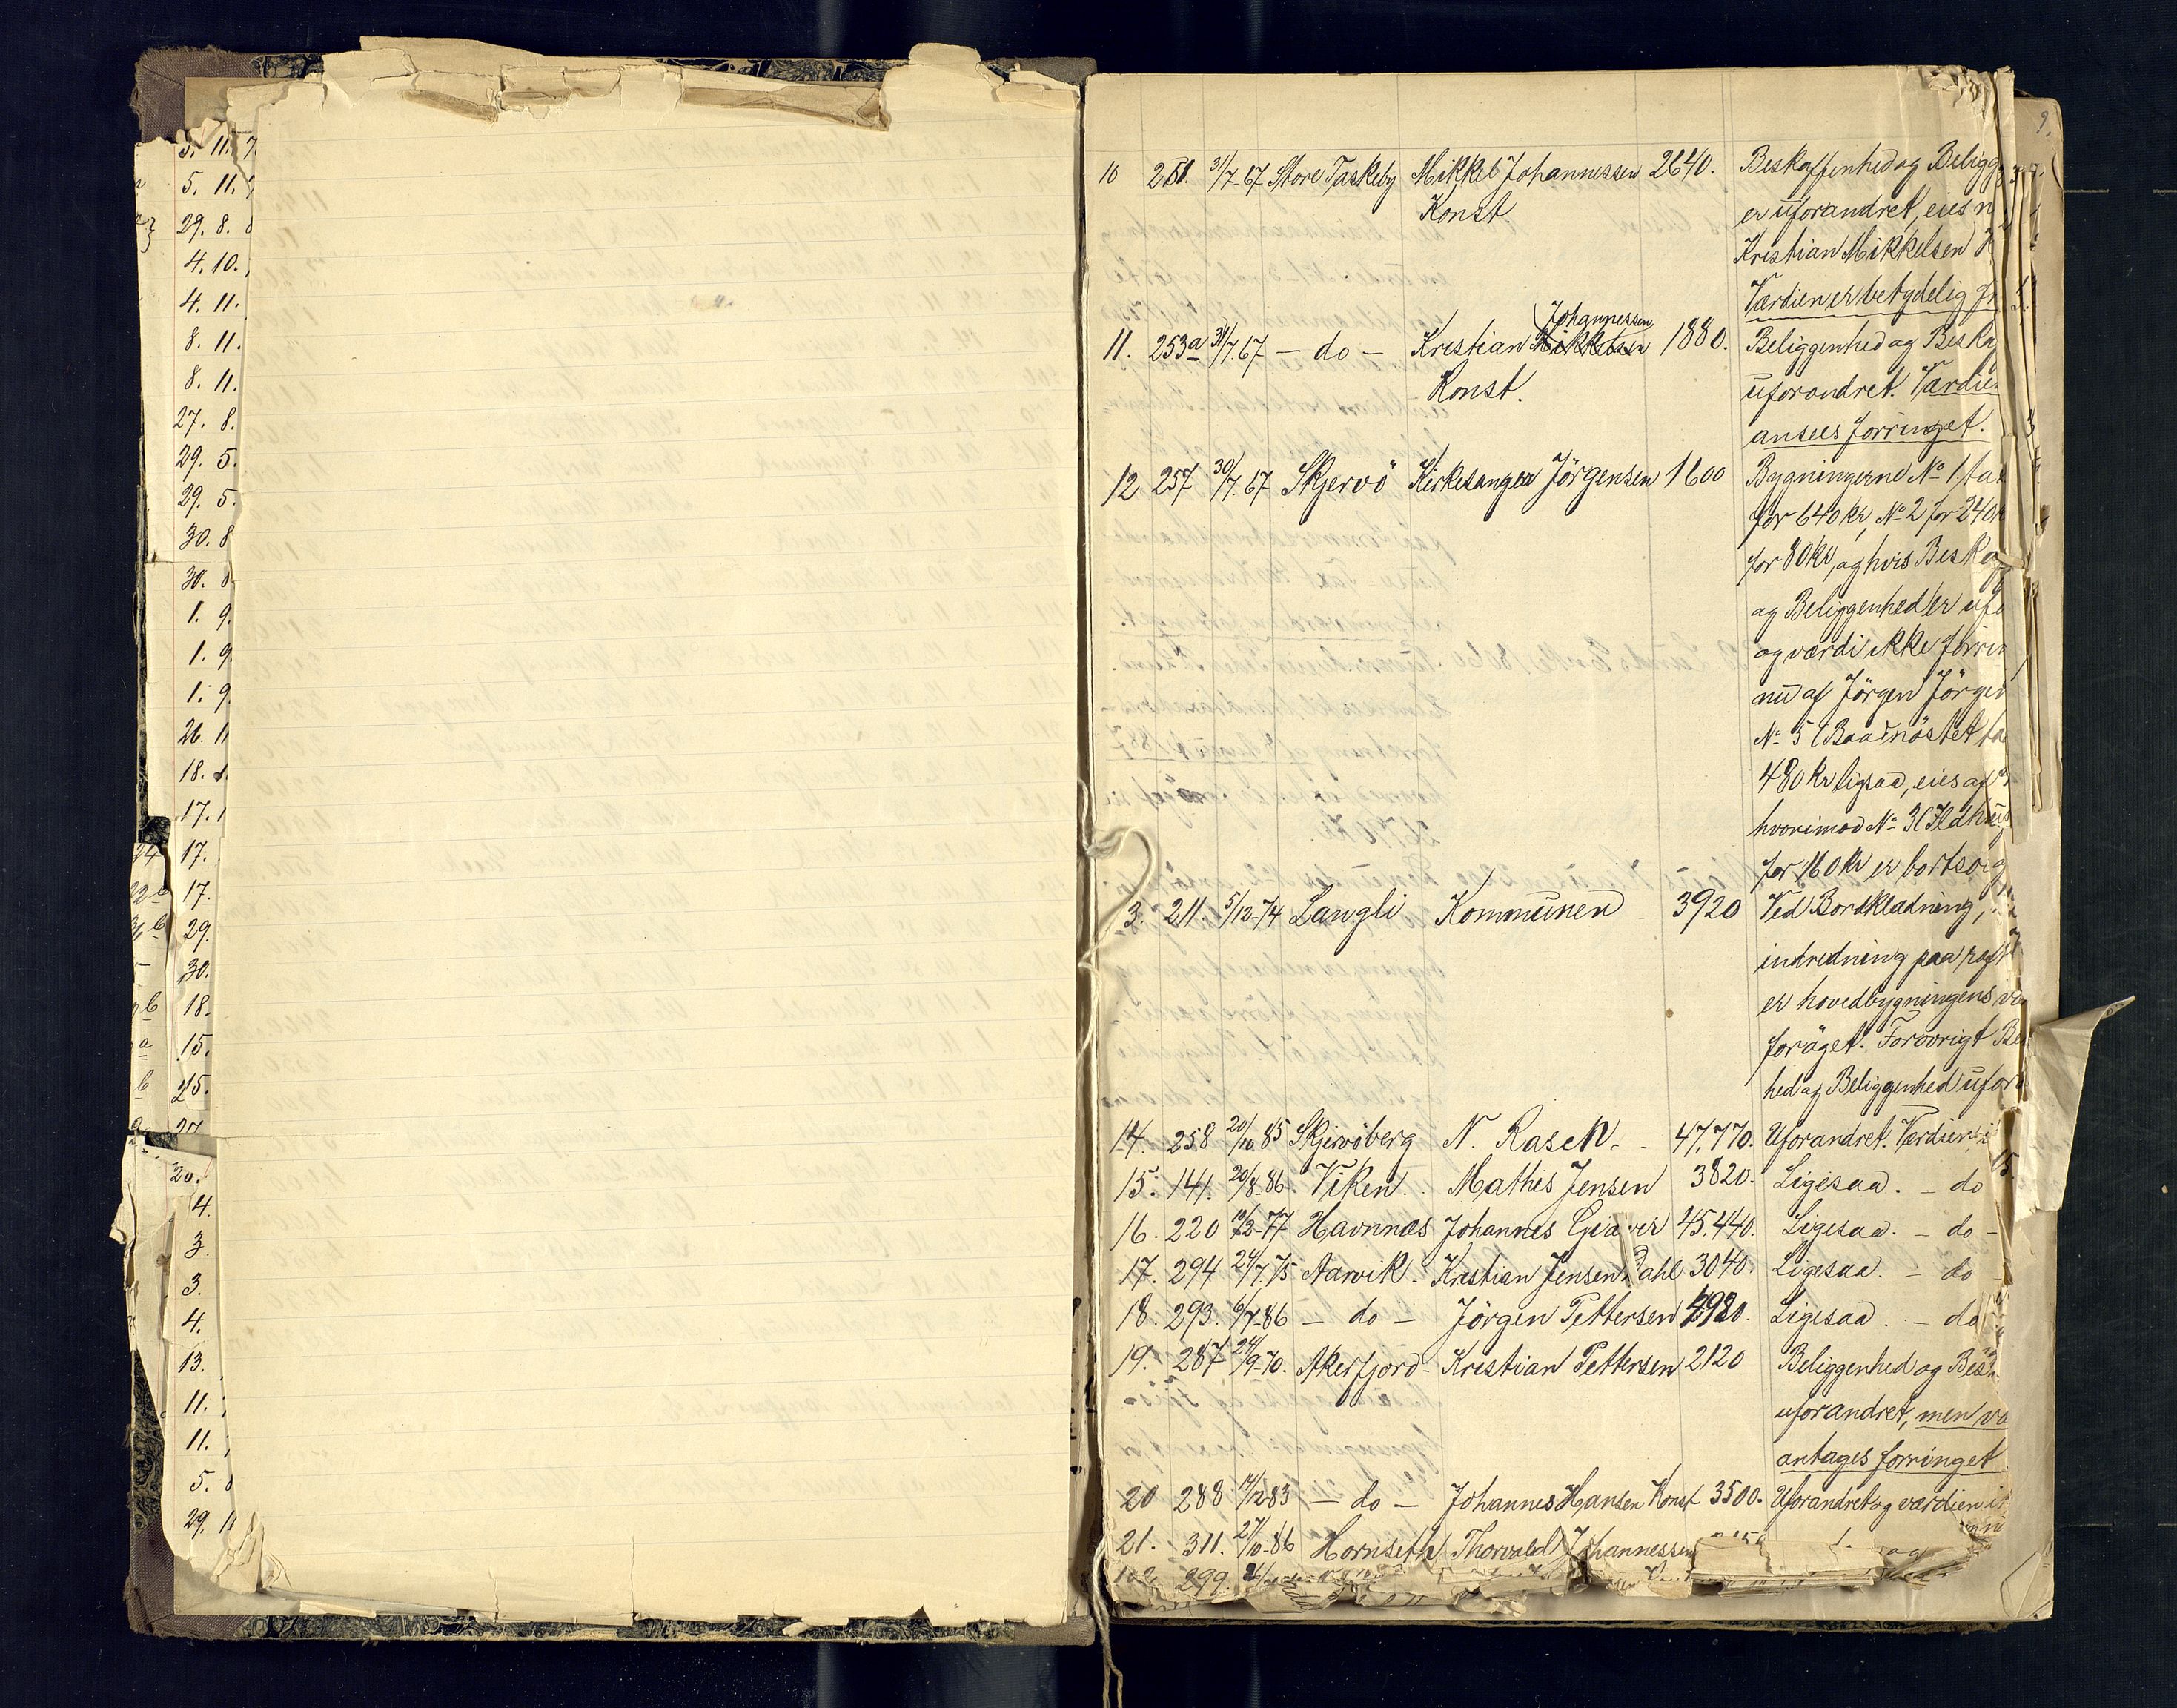 5. 11. 7.
5. 11.
29. 8. 8
4. 10.
4. 11.
8. 11.
8. 11.
27. 8.
29. 5.
29. 5.
30. 8
30. 8
1. 9.
1. 9.
1. 9
26. 11
18.
17. 1
24 17.
22b 17.
b 29.
30.
b 18.
a 15.
b 25.
a 27
30.
4.
3.
3.
4.
13.
11.
11.
5. 8
29. 11
9.
10 251. 31/7-67 Store Taskeby Mikkel Johannessen 2640. Beskaffenhed og Beligg
Konst. er uforandret, eies n
Kristian Mikkelsen K
Værdien er betydelig
Johannessen
11. 253a 31/7.67 — do — Kristian Mikkelsen 1880. Beliggenhed og Beska
Konst. uforandret. Værdie
ansees forringet.
12 257 30/7.67 Skjervö Kirkesanger Jörgensen 1600 Bygningerne No 1, tax
for 640 kr, No 2 for 240 k
for 80 kr, og hvis Beskaf
og Beliggenhed er ufo
og værdi ikke forrin
nu af Jörgen Jörgen
No 5 (Baadnöstet ta
480 kr ligsaa, eies af
hvorimod No 3 (Ildhus
for 160 kr er bortsolg
3. 211. 5/12-74 Langli Kommunen 3920 Ved Bordklædning,
indredning paa
er hovedbygningens væ
foröget. Forövrigt Be
hed og Beliggenhed ufor
14. 258 20/10 85 Skjervöberg N. Rasch. 47,770. Uforandret. Værdien i
15. 141. 20/8-86 Viken. Mathis Jensen 3820. Ligesaa. — do
16. 220 10/2-77 Havnnæs Johannes Giæver 45.440. Ligesaa. — do —
17. 294 24/7.75 Aarvik. Kristian Jensen Dahl 3040. Ligesaa. — do
18. 293. 6/7-86 — do — Jörgen Pettersen 4980. Ligesaa. — do
19. 287 24/9-70. Akerfjord Kristian Pettersen 2120 Beliggenhed og Besk
uforandret, men væ
antages forringet
20 288 14/12-83 — do — Johannes Hansen Konst 3500. Uforandret og værdien i
21. 311. 27/10-86 Hornseth Thorvald Johannessen
299.